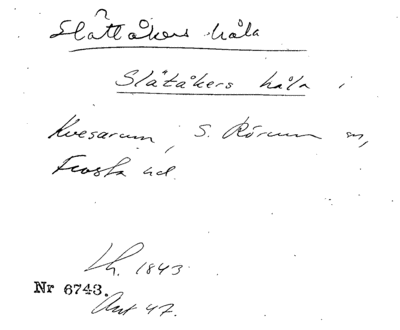 Slåttåkers håla
Slåtåkers håla i
Kvesarum, S. Rörum sn,
Frosta hd.
Lh. 1843
Nr 6743.
Ant 47.